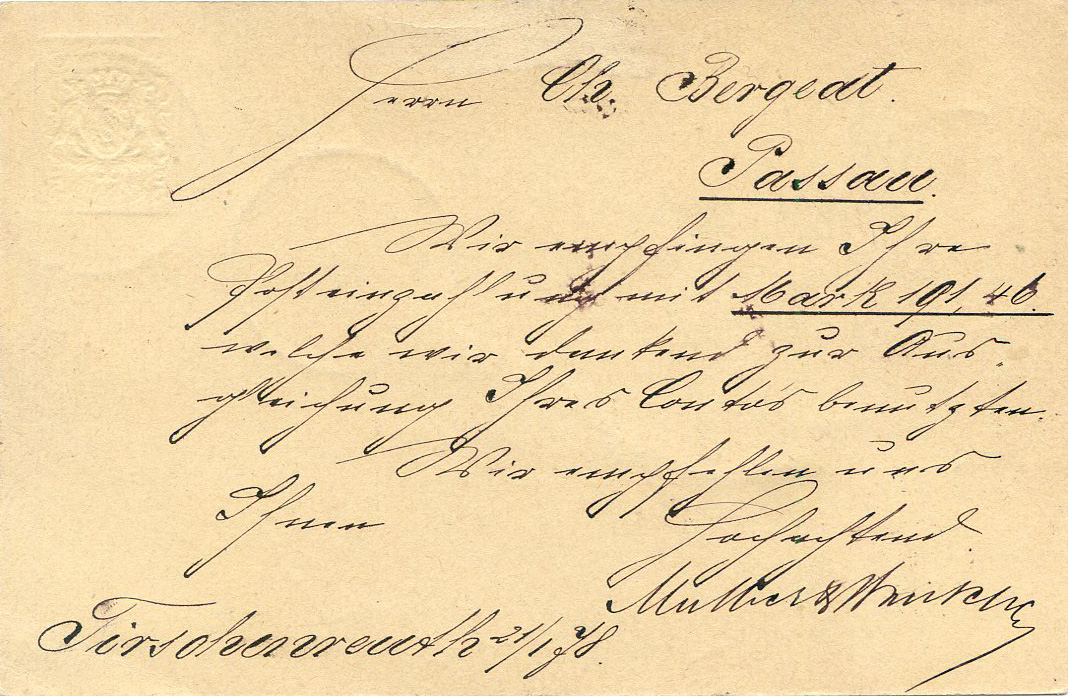 Herrn Ch. Bergeat.
Passau.
Wir empfingen Ihre
Posteinzahlung mit Mark 191,46.
welche wir dankend zur Aus-
gleichung Ihres Conto's benutzten.
Wir empfehlen uns
Ihnen Hochachtend
&
Tirschenreuth 21/1 78.